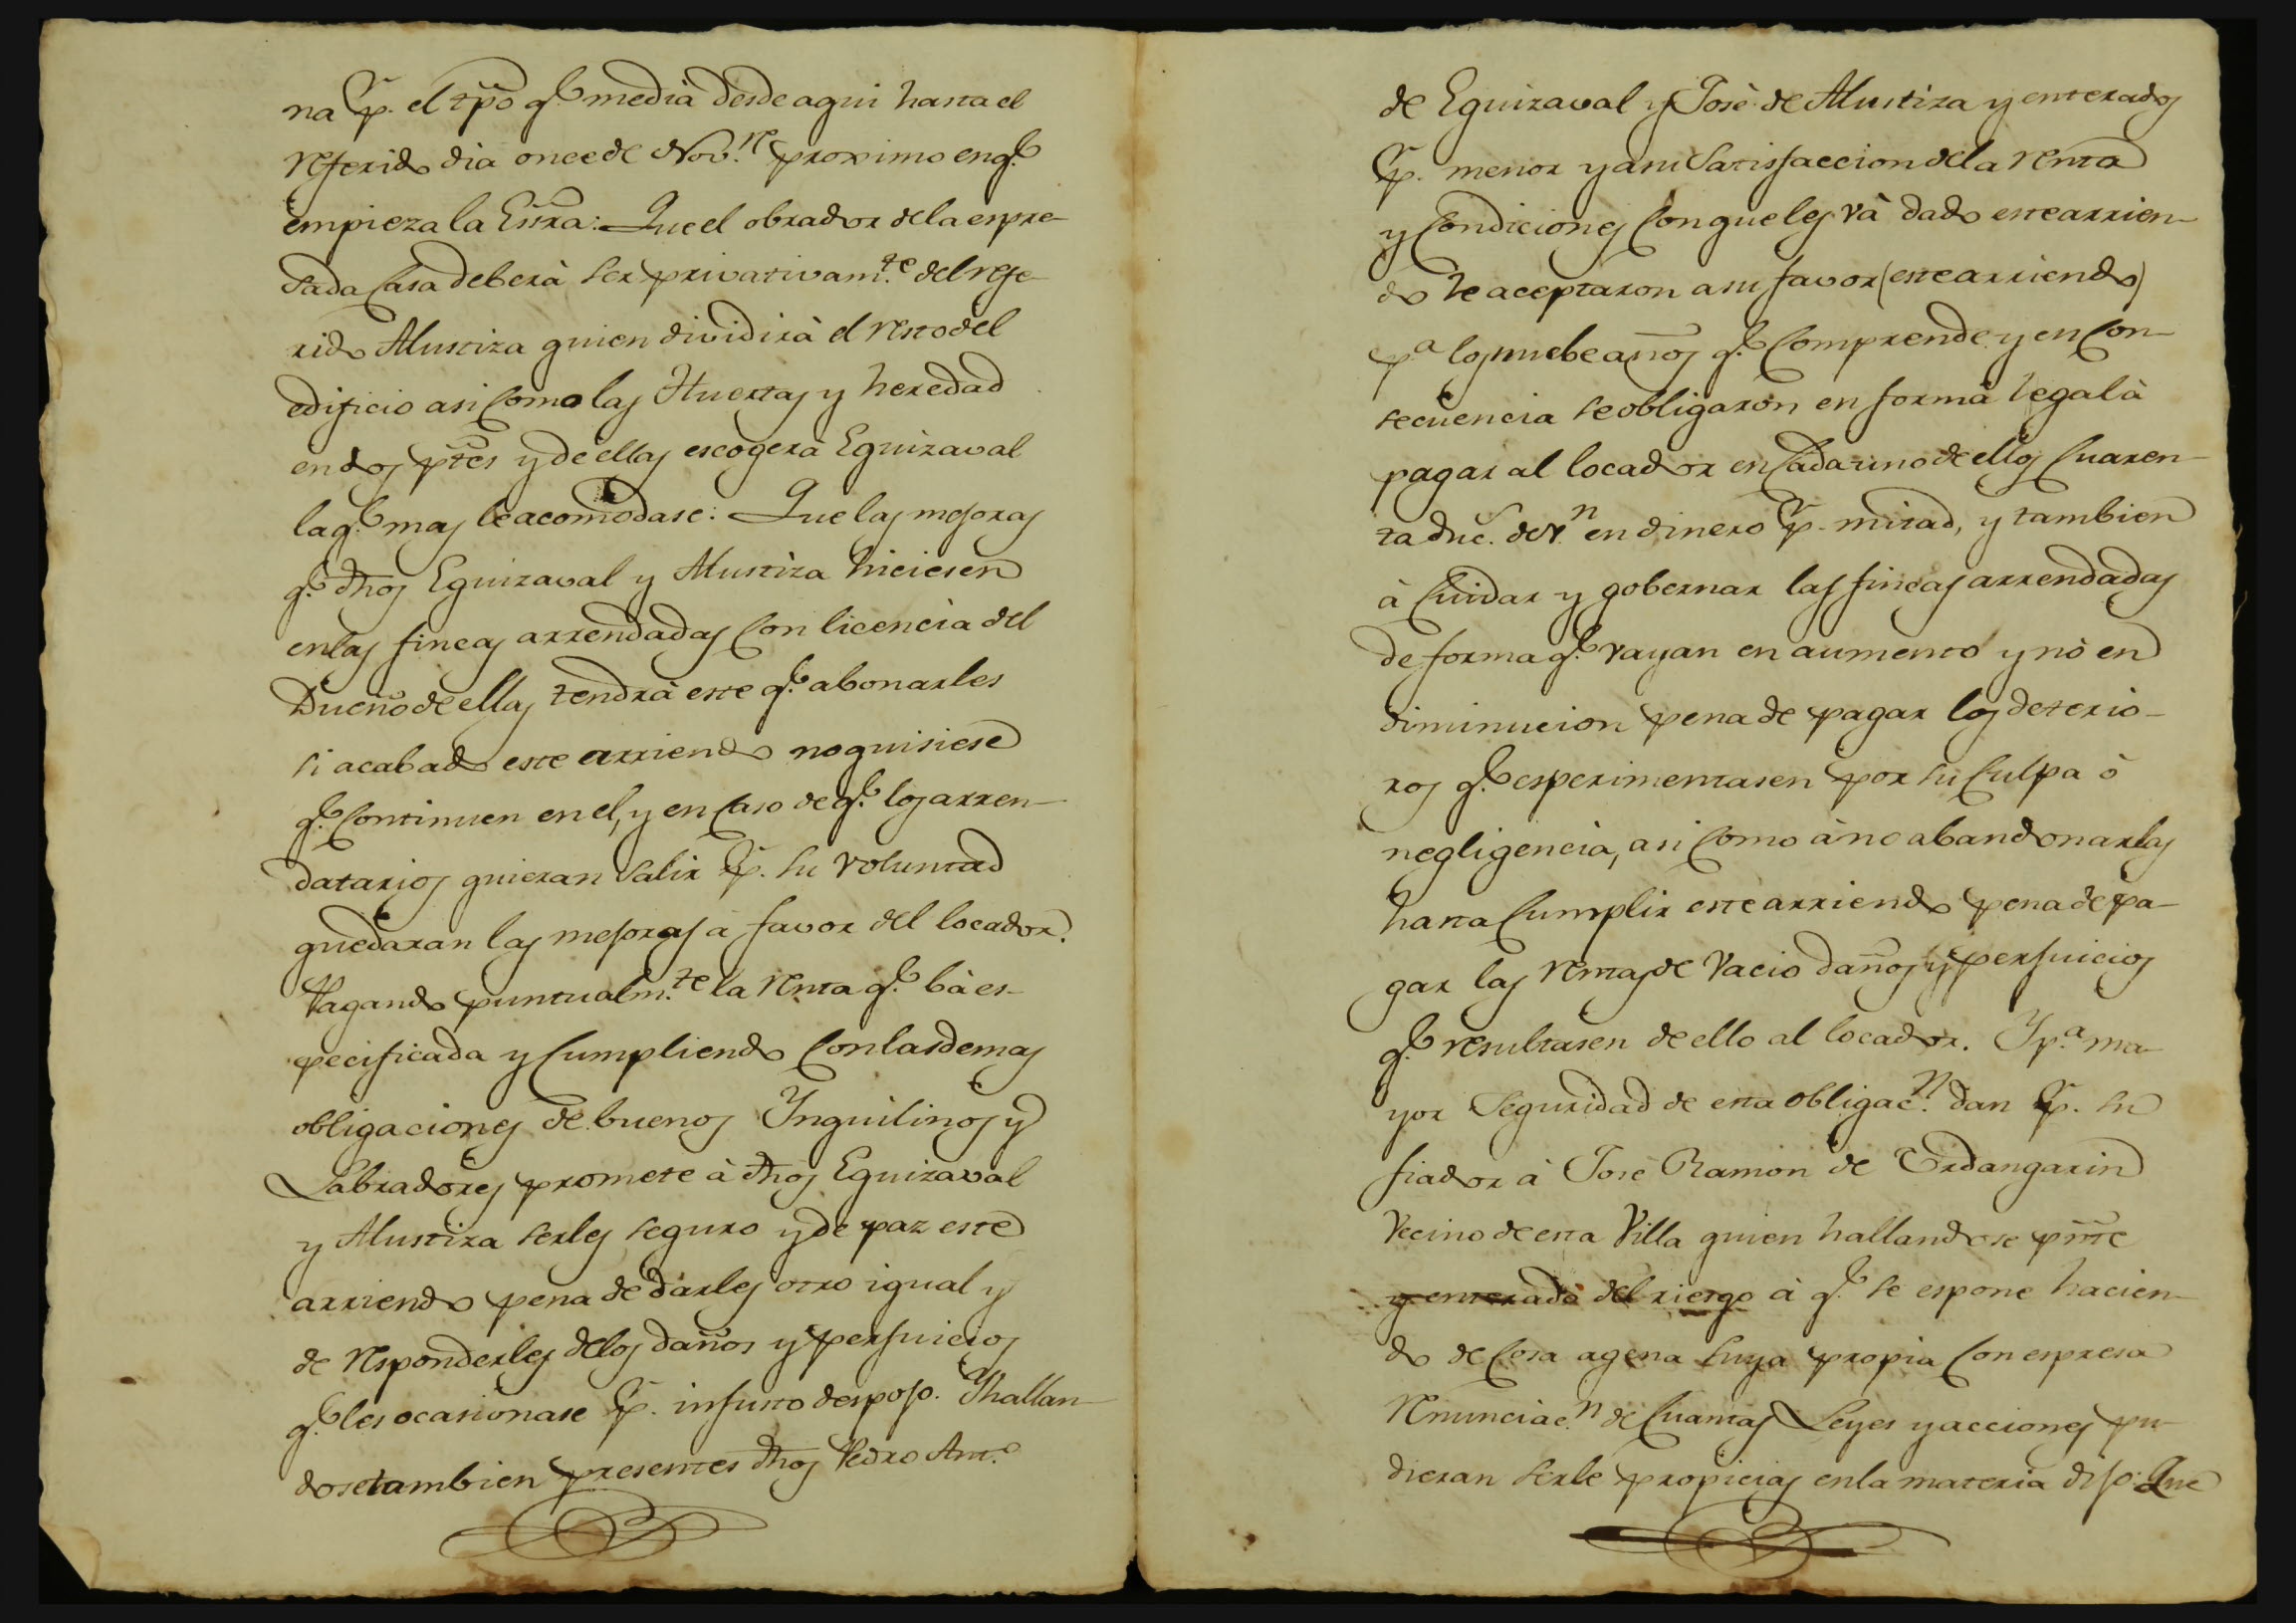 na p.r el tpõ q.e media desde aqui hasta el
referido dia once de Nov.re proximo en q.e
empieza la Essra: Que el obrador de la espre-
sada Casa deberà ser privativam.te del refe-
rido Mustiza quien dividirà el resto del
edificio asi como las Huertas y heredad
en dos ptes y de ellas escogerà Eguizaval
la q.e mas le acomodase: Que las mejoras
q.e dhos Eguizaval y Mustiza hiciesen
en las fincas arrendadas con licencia del
Dueño de ellas tendrà este q.e abonarles
si acabado este arriendo no quisiese
q.e Continuen en el, y en Caso de q.e los arren-
datarios quieran salir p.r su voluntad
quedaran las mejoras a favor del locador.
Pagando puntualm.te la renta q.e bà es-
pecificada y Cumpliendo Con las demas
obligaciones de buenos Ynquilinos y
Labradores promete à dhos Eguizaval
y Mustiza serles seguro y de paz este
arriendo pena de darles otro igual y
de responderles de los daños y perjuicios
q.e les ocasionase p.r injusto despojo. Y hallan-
dose tambien presentes dhos Pedro Ant.o
de Eguizaval y José de Mustiza y enterados
p.r menor y a su Satisfaccion de la renta
y Condiciones Con que les và dado este arrien-
do le aceptaron a su favor (este arriendo)
p.a los nuebe años q.e Comprende y en Con-
secuencia se obligaron en forma legal à
pagar al locador en Cada uno de ellos Cuaren-
ta duc.s de v.n en dinero p.r mitad, y tambien
à Cuidar y gobernar las fincas arrendadas
de forma q.e vayan en aumento y nò en
diminucion pena de pagar los deterio-
ros q.e esperimentasen por su Culpa ò
negligencia, asi Como à no abandonarlas
hasta Cumplir este arriendo pena de pa-
gar las rentas de vacio daños y perjuicios
q.e resultasen de ello al locador. Y p.a ma-
yor Seguridad de esta obligac.n dan p.r su
fiador à José Ramon de Urdangarin
Vecino de esta Villa quien hallandose pnte
y enterado del riesgo à q.e se espone hacien-
do de Cosa agena suya propia Con espresa
renunciac.n de Cuantas Leyes y acciones pu-
dieran serle propicias en la materia dijo: Que